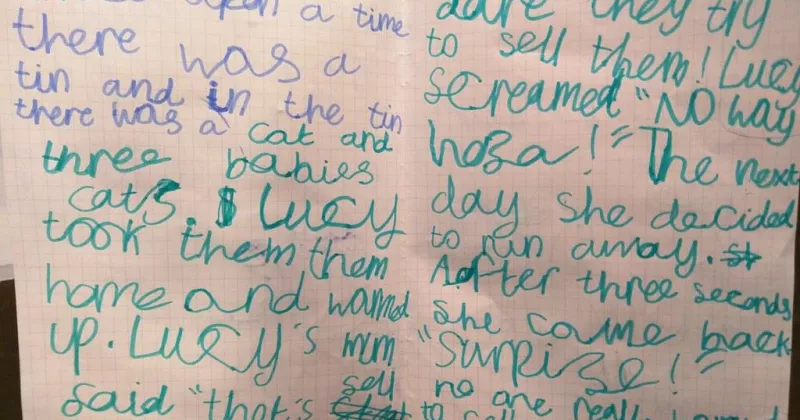 upon a time
there was a
tin and in the tin
there was a cat and
three babies
cats. Lucy
took them them
home and warmed
up. Lucy's mum
said "that's sell
dare they try
to sell them! Lucy
screamed "NO way
hoza!" The next
day she decided
to run away.
After three seconds
she came back
"Surprize!"
no one really